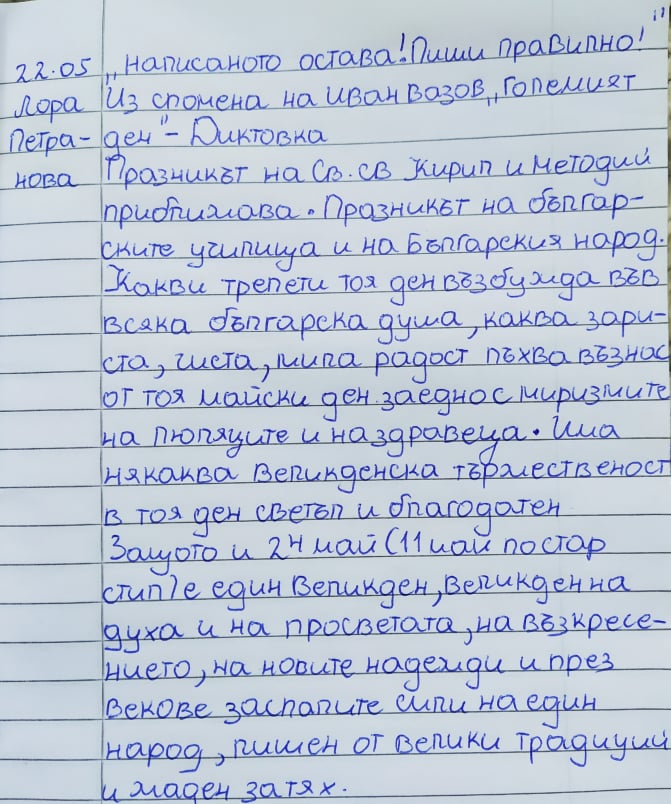 22.05 „Написаното остава! Пиши правилно!"
Лора Из спомена на Иван Вазов „Големият
Петра- ден" - Диктовка
нова Празникът на Св. св Кирил и Методий
приближава. Празникът на българ-
ските училища и на Българския народ.
Какви трепети тоя ден възбужда във
всяка българска душа, каква зари-
ста, чиста, мила радост лъхва възнос
от тоя майски ден заедно с миризмите
на люляците и на здравеца. Има
някаква Великденска тържественост
в тоя ден светъл и благодатен
Защото и 24 май (11 май по стар
стил) е един Великден, великден на
духа и на просветата, на възкресе-
нието, на новите надежди и през
векове заспалите сили на един
народ, лишен от велики традиций
и жаден за тях.